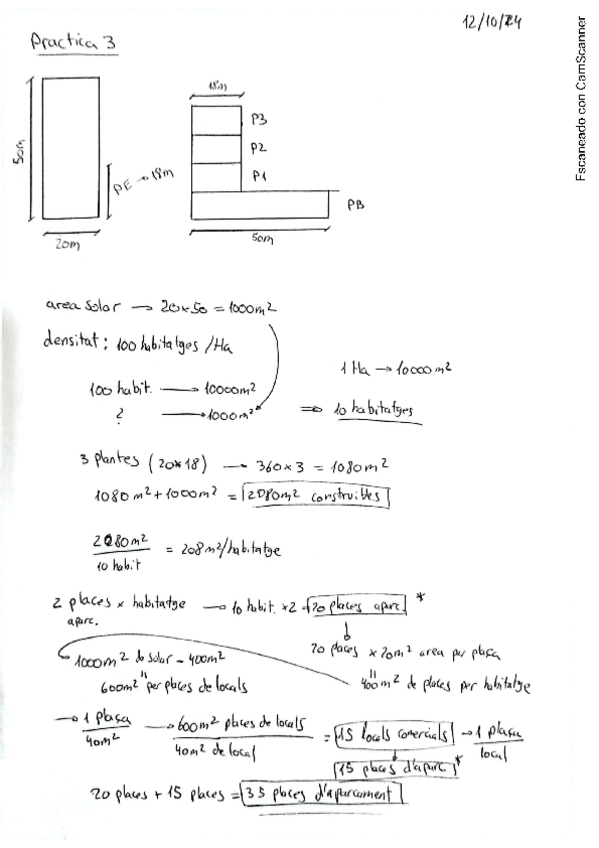 12/10/24
Practica 3
Escaneado con CamScanner
18m
50m
P3
P2
P1
PE → 18m
PB
20m
50m
area solar → 20x50 = 1000m²
densitat: 100 habitatges /Ha
1 Ha → 10000m²
100 habit. → 10000m²
? → 1000m² ⇒ 10 habitatges
3 plantes (20x18) → 360x3 = 1080m²
1080m² + 1000m² = 2080m² construibles
2080m² / 10 habit = 208m²/habitatge
2 places x habitatge → 10 habit. x2 = 20 places aparc. *
aparc.
20 places x 20m² area per plaça
1000m² de solar - 400m²
"
"
600m² per places de locals
400m² de places per habitatge
→ 1 plaça / 40m² → 600m² places de locals / 40m² de local = 15 locals comercials → 1 plaça / local
15 places d'aparc. *
20 places + 15 places = 35 places d'aparcament